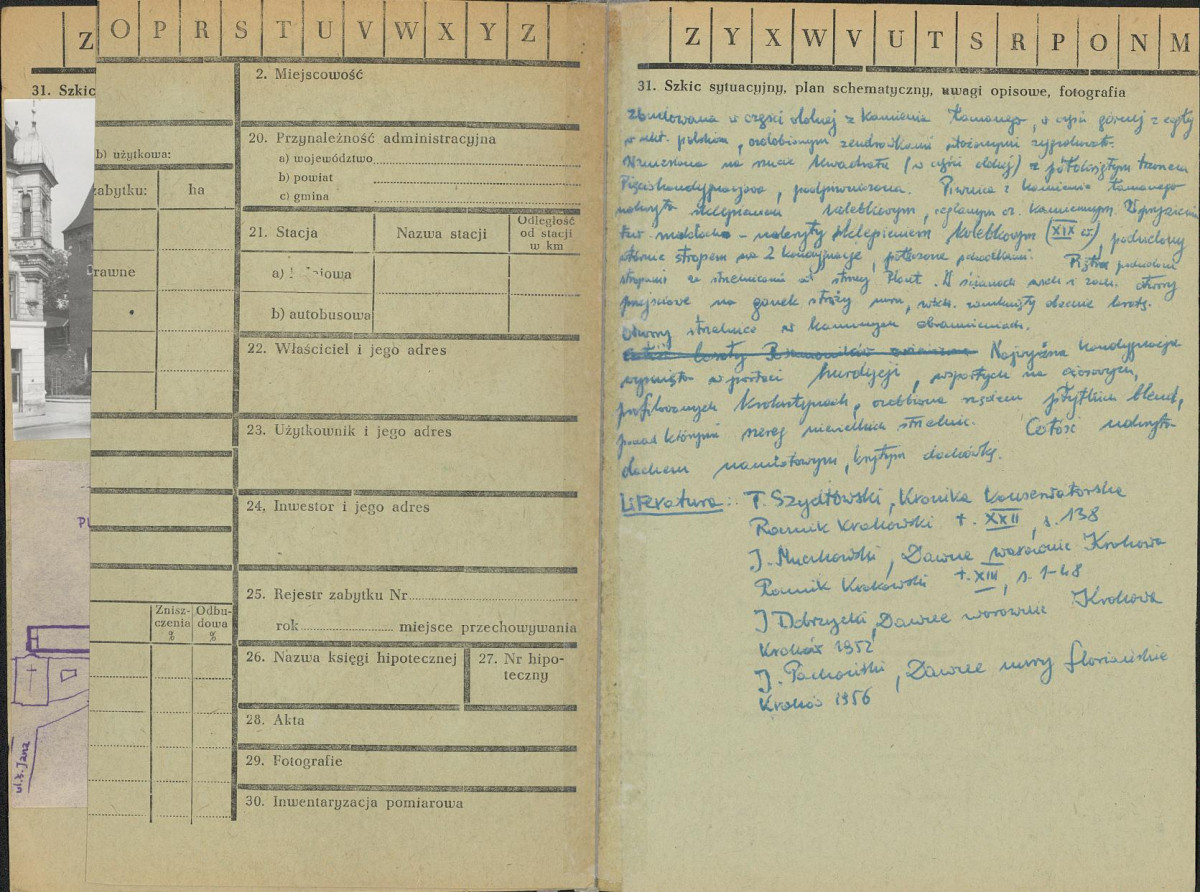 Z
O P R S T U V W X Y Z
31. Szkic
b) użytkowa:
zabytku:
ha
rawne
Znisz-
czenia
%
Odbu-
dowa
%
ul. ś. Jana
2. Miejscowość
20. Przynależność administracyjna
a) województwo
b) powiat
c) gmina
21. Stacja
Nazwa stacji
Odległość
od stacji
w km
a)
b) autobusowa
22. Właściciel i jego adres
23. Użytkownik i jego adres
24. Inwestor i jego adres
25. Rejestr zabytku Nr
rok miejsce przechowywania
26. Nazwa księgi hipotecznej
27. Nr hipo-
teczny
28. Akta
29. Fotografie
30. Inwentaryzacja pomiarowa
Z Y X W V U T S R P O N M
31. Szkic sytuacyjny, plan schematyczny, uwagi opisowe, fotografia
Zbudowana w części dolnej z kamienia łamanego, w części górnej z cegły
polskim, ozdobionym zendrówkami ułożonymi zygzakowato.
Wzniesiona na rzucie kwadratu (w części dolnej) z półokrągłym trzonem
Pięciokondygnacjowa, podpiwniczona. Piwnica z kamienia łamanego
nakryta sklepieniem kolebkowym, ceglanym cz. kamiennym. W przyziemiu
nakryty sklepieniem kolebkowym (XIX w), podzielony
stropem na 2 kondygnacje, połączone schodkami. Piętra podzielone
stropami ze strzelnicami od strony Plant. W ścianach wsch i zach. otwory
przejściowe na ganek straży muru, wsch. zamknięty obecnie kratą.
Otwory strzelnicze w kamiennych obramieniach.
Najwyższa kondygnacja
wysunięta w postaci hurdycji, wspartych na ciosowych,
profilowanych kroksztynach, ozdobiona rzędem płytkich blend,
ponad którymi szereg niewielkich strzelnic. Całość nakryta
dachem namiotowym, krytym dachówką.
Literatura: T. Szydłowski, Kronika konserwatorska
Rocznik Krakowski t. XXII, s. 138
J. Muczkowski, Dawne warownie Krakowa
Rocznik Krakowski t. XIII, s. 1-48
J Dobrzycki, Dawne warownie Krakowa
Kraków 1952
J. Pachoński, Dawne mury floriańskie
Kraków 1956